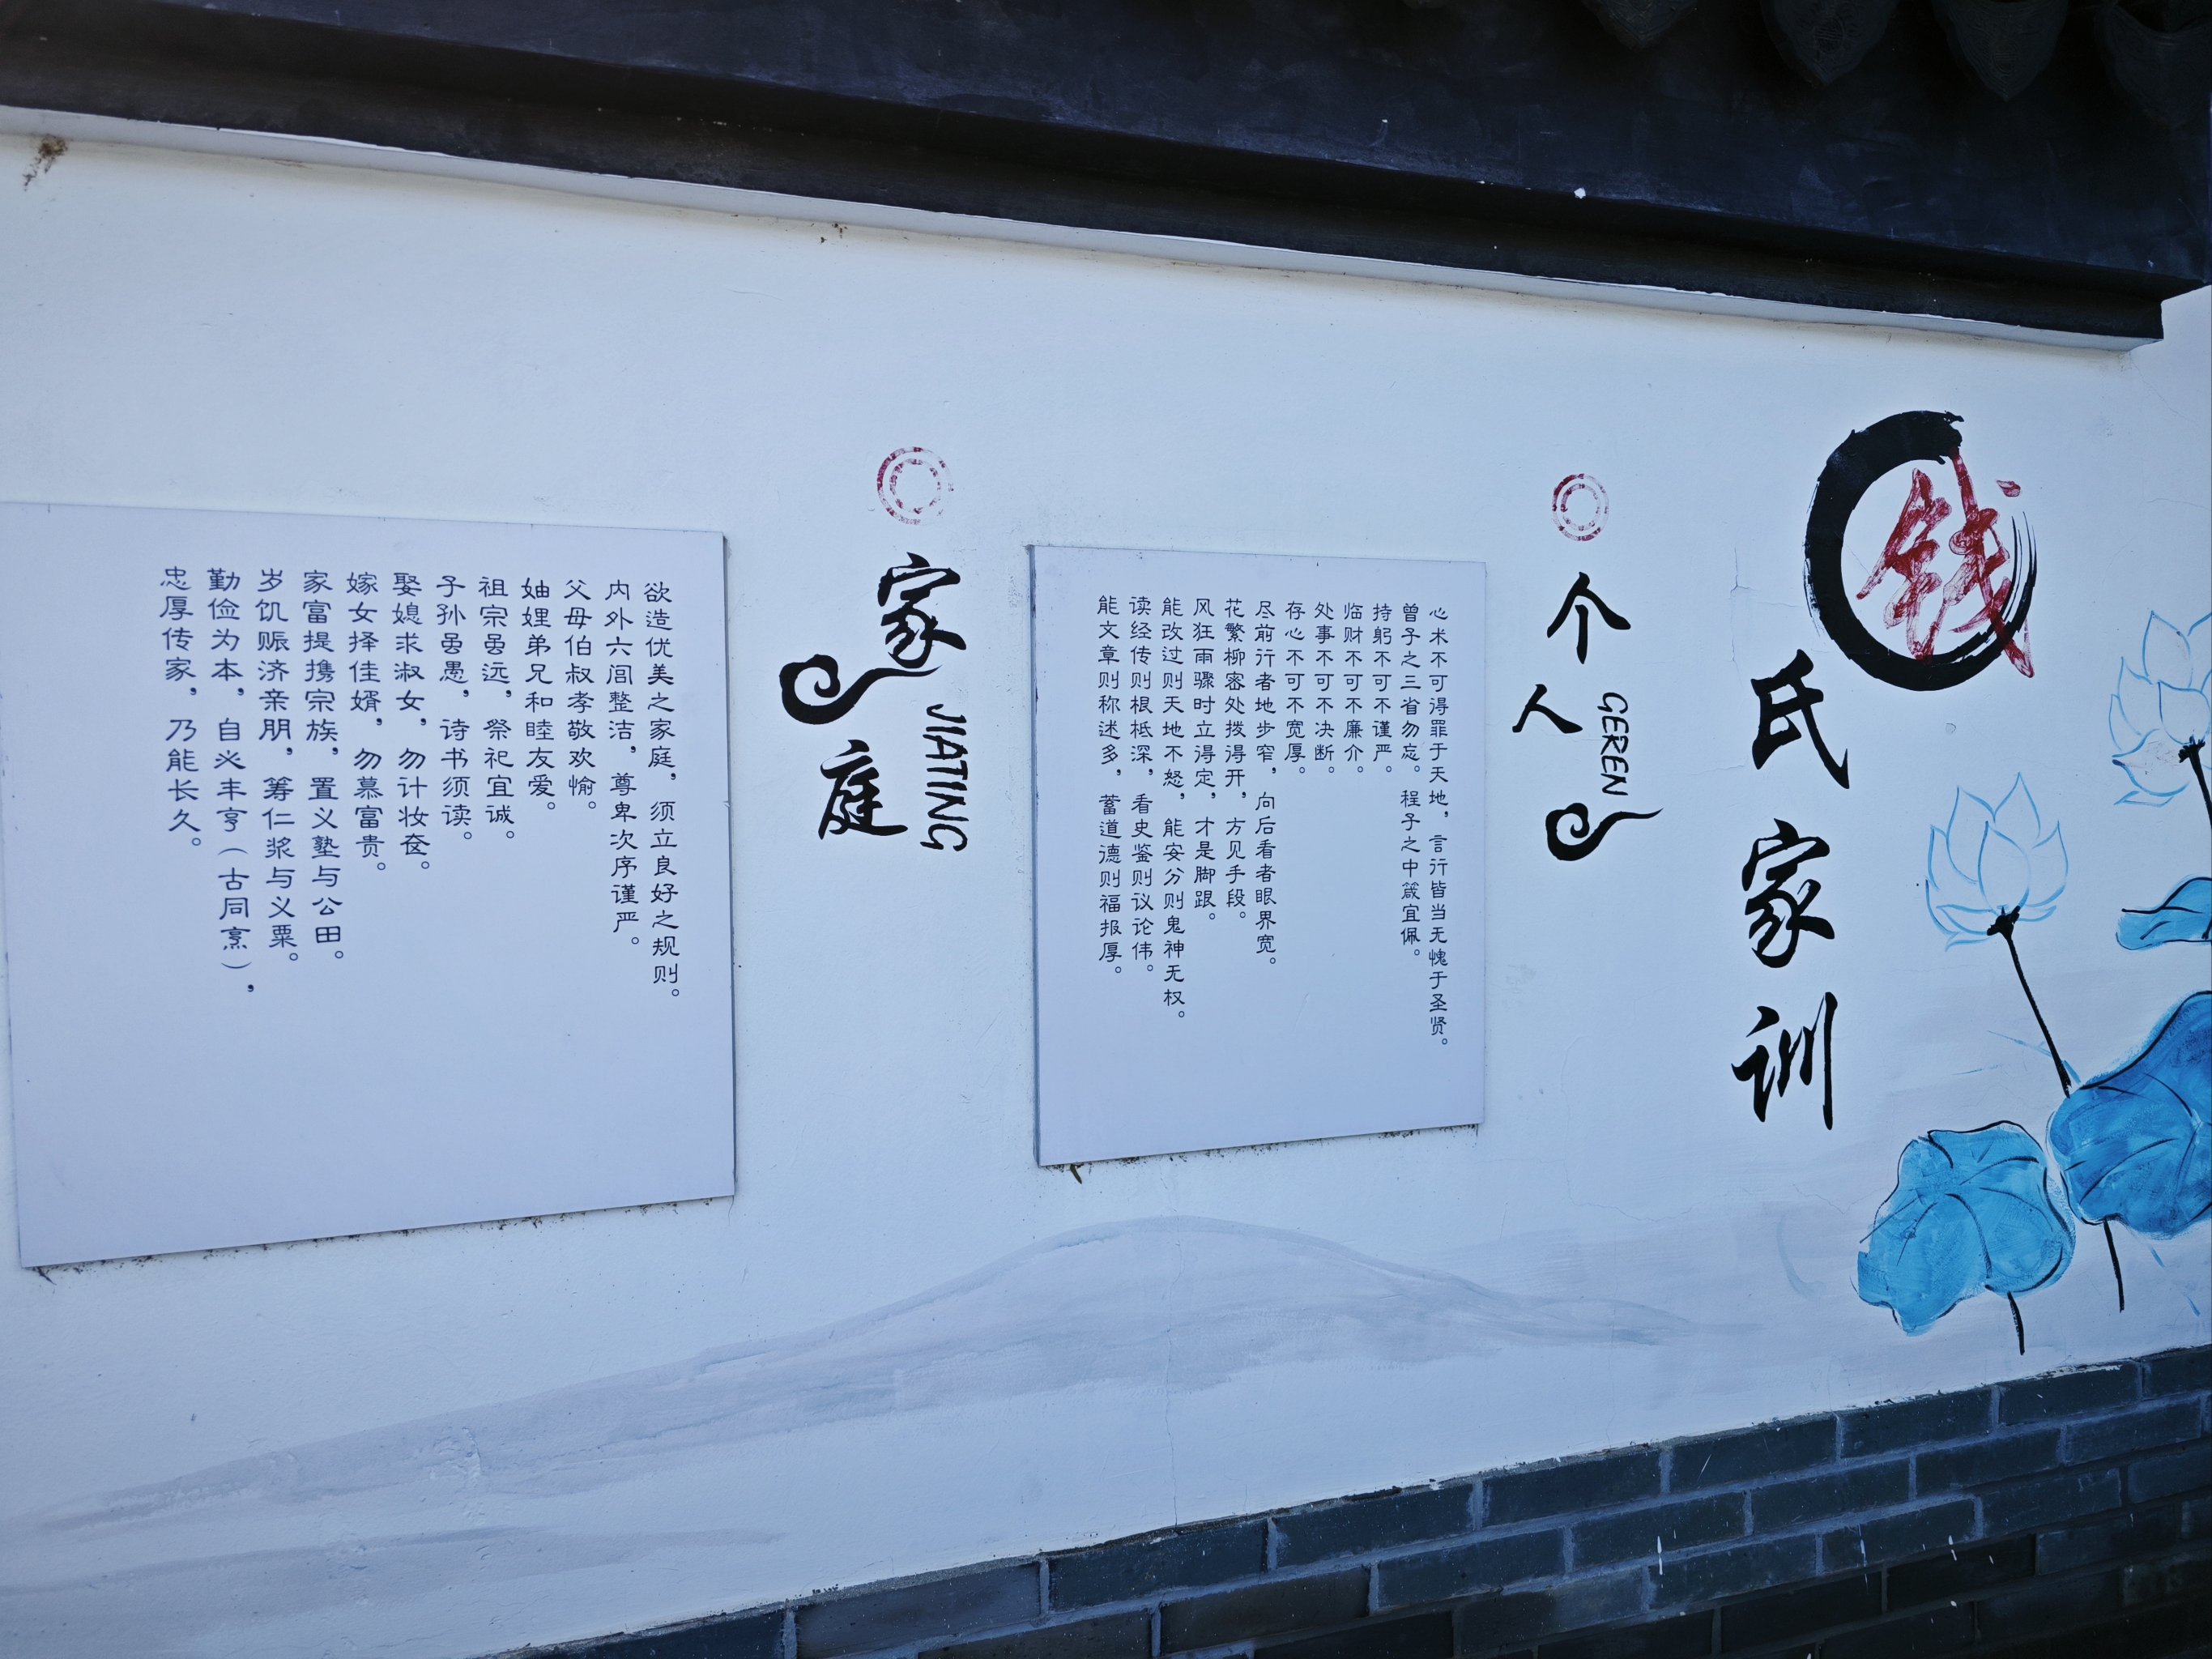 钱氏家训
个人
GEREN
心术不可得罪于天地，言行皆当无愧于圣贤。
曾子之三省勿忘。程子之中箴宜佩。
持躬不可不谨严。
临财不可不廉介。
处事不可不决断。
存心不可不宽厚。
尽前行者地步窄，向后看者眼界宽。
花繁柳密处拨得开，方见手段。
风狂雨骤时立得定，才是脚跟。
能改过则天地不怒，能安分则鬼神无权。
读经传则根柢深，看史鉴则议论伟。
能文章则称述多，蓄道德则福报厚。
家庭
JIATING
欲造优美之家庭，须立良好之规则。
内外六闾整洁，尊卑次序谨严。
父母伯叔孝敬欢愉。
妯娌弟兄和睦友爱。
祖宗虽远，祭祀宜诚。
子孙虽愚，诗书须读。
娶媳求淑女，勿计妆奁。
嫁女择佳婿，勿慕富贵。
家富提携宗族，置义塾与公田。
岁饥赈济亲朋，筹仁浆与义粟。
勤俭为本，自必丰亨（古同烹），
忠厚传家，乃能长久。